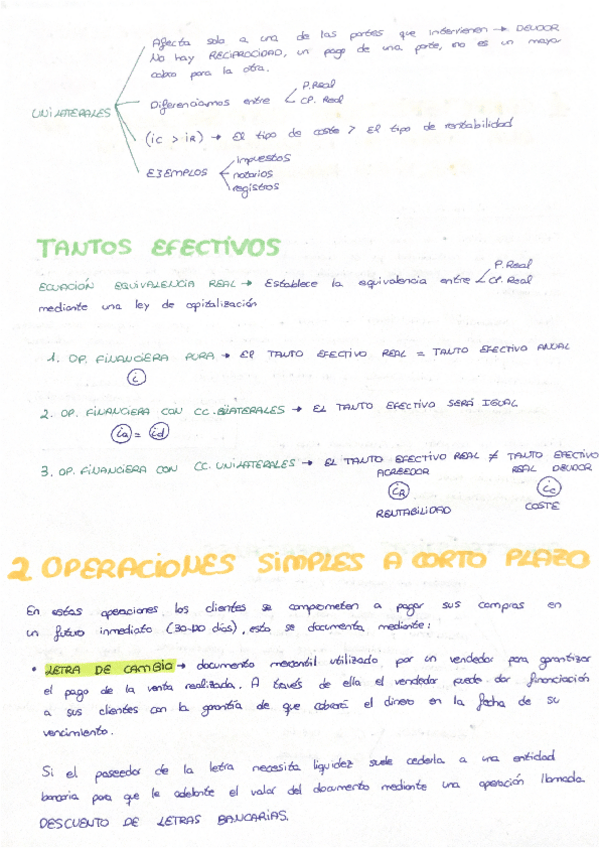 Afecta solo a una de las partes que intervienen → DEUDOR
No hay RECIPROCIDAD, un pago de una parte, no es un mayor
cobro para la otra.
UNILATERALES
Diferenciamos entre P.Real
CP. Real
(ic > iR) → El tipo de coste > El tipo de rentabilidad
EJEMPLOS
impuestos
notarios
registros
TANTOS EFECTIVOS
ECUACIÓN EQUIVALENCIA REAL → Establece la equivalencia entre P.Real
CP. Real
mediante una ley de capitalización
1. OP. FINANCIERA PURA → El TANTO EFECTIVO REAL = TANTO EFECTIVO ANUAL
i
2. OP. FINANCIERA CON CC. BILATERALES → EL TANTO EFECTIVO SERÁ IGUAL
ia = id
3. OP. FINANCIERA CON CC. UNILATERALES → EL TANTO EFECTIVO REAL ≠ TANTO EFECTIVO
ACREEDOR REAL DEUDOR
iR ic
RENTABILIDAD COSTE
2 OPERACIONES SIMPLES A CORTO PLAZO
En estas operaciones los clientes se comprometen a pagar sus compras en
un futuro inmediato (30- días), esto se documenta mediante:
• LETRA DE CAMBIO → documento mercantil utilizado por un vendedor para garantizar
el pago de la venta realizada. A través de ella el vendedor puede dar financiación
a sus clientes con la garantía de que cobrará el dinero en la fecha de su
vencimiento.
Si el poseedor de la letra necesita liquidez suele cederla a una entidad
bancaria para que le adelante el valor del documento mediante una operación llamada
DESCUENTO DE LETRAS BANCARIAS.